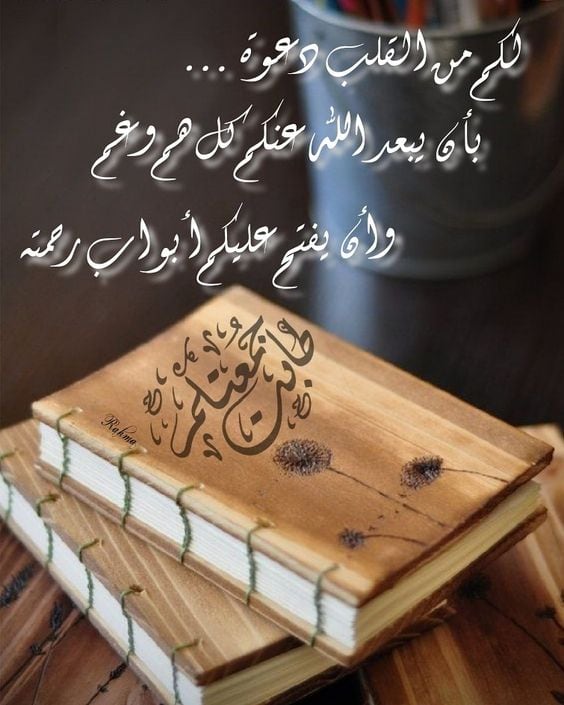 لكم من القلب دعوة ...
بأن يبعد الله عنكم كل هم وغم
وأن يفتح عليكم أبواب رحمته
طابت
جمعتكم
Rahma